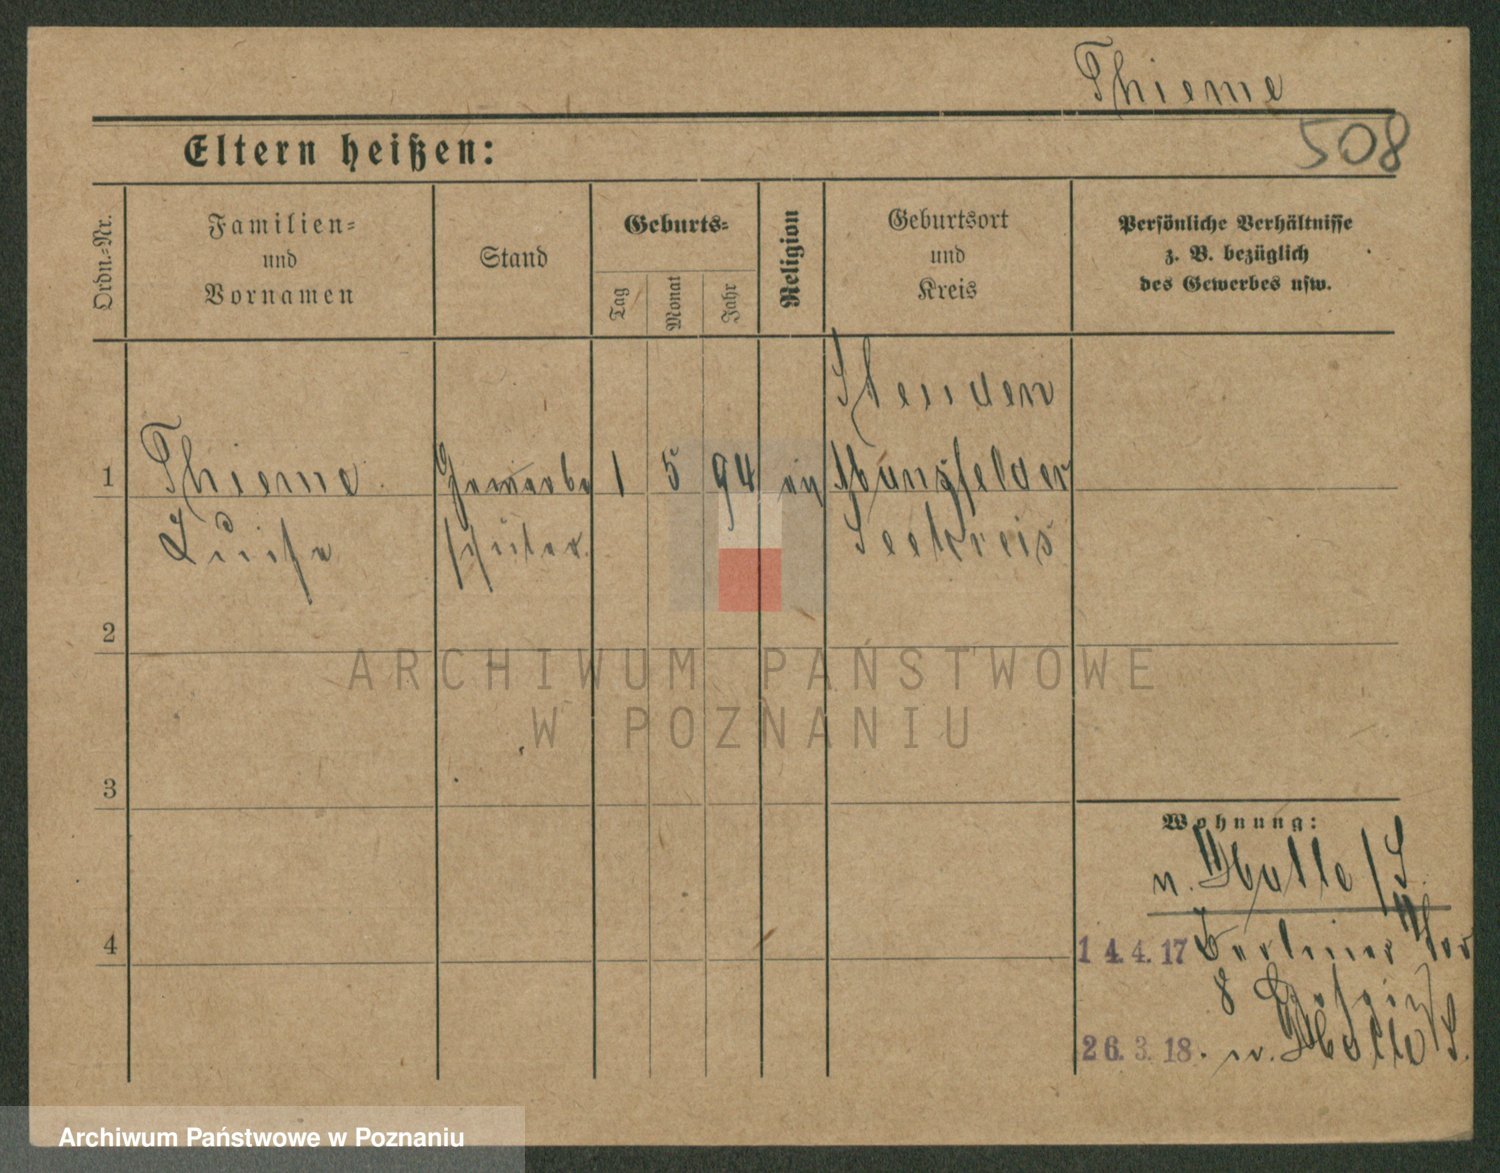 Thieme
508
Eltern heißen:
Ordn.-Nr.
Familien-
und
Vornamen
Stand
Geburts-
Tag
Monat
Jahr
Religion
Geburtsort
und
Kreis
Persönliche Verhältnisse
z. B. bezüglich
des Gewerbes usw.
Steuden
1 Thieme Gewerbe 1 5 94 ev Mansfelder
Luise schüler. Seekreis
2
ARCHIWUM PAŃSTWOWE
W POZNANIU
3
Wohnung:
n. Halle/S.
4
14.4.17 Berliner Tor
8
26.3.18. n. Halle S.
Archiwum Państwowe w Poznaniu